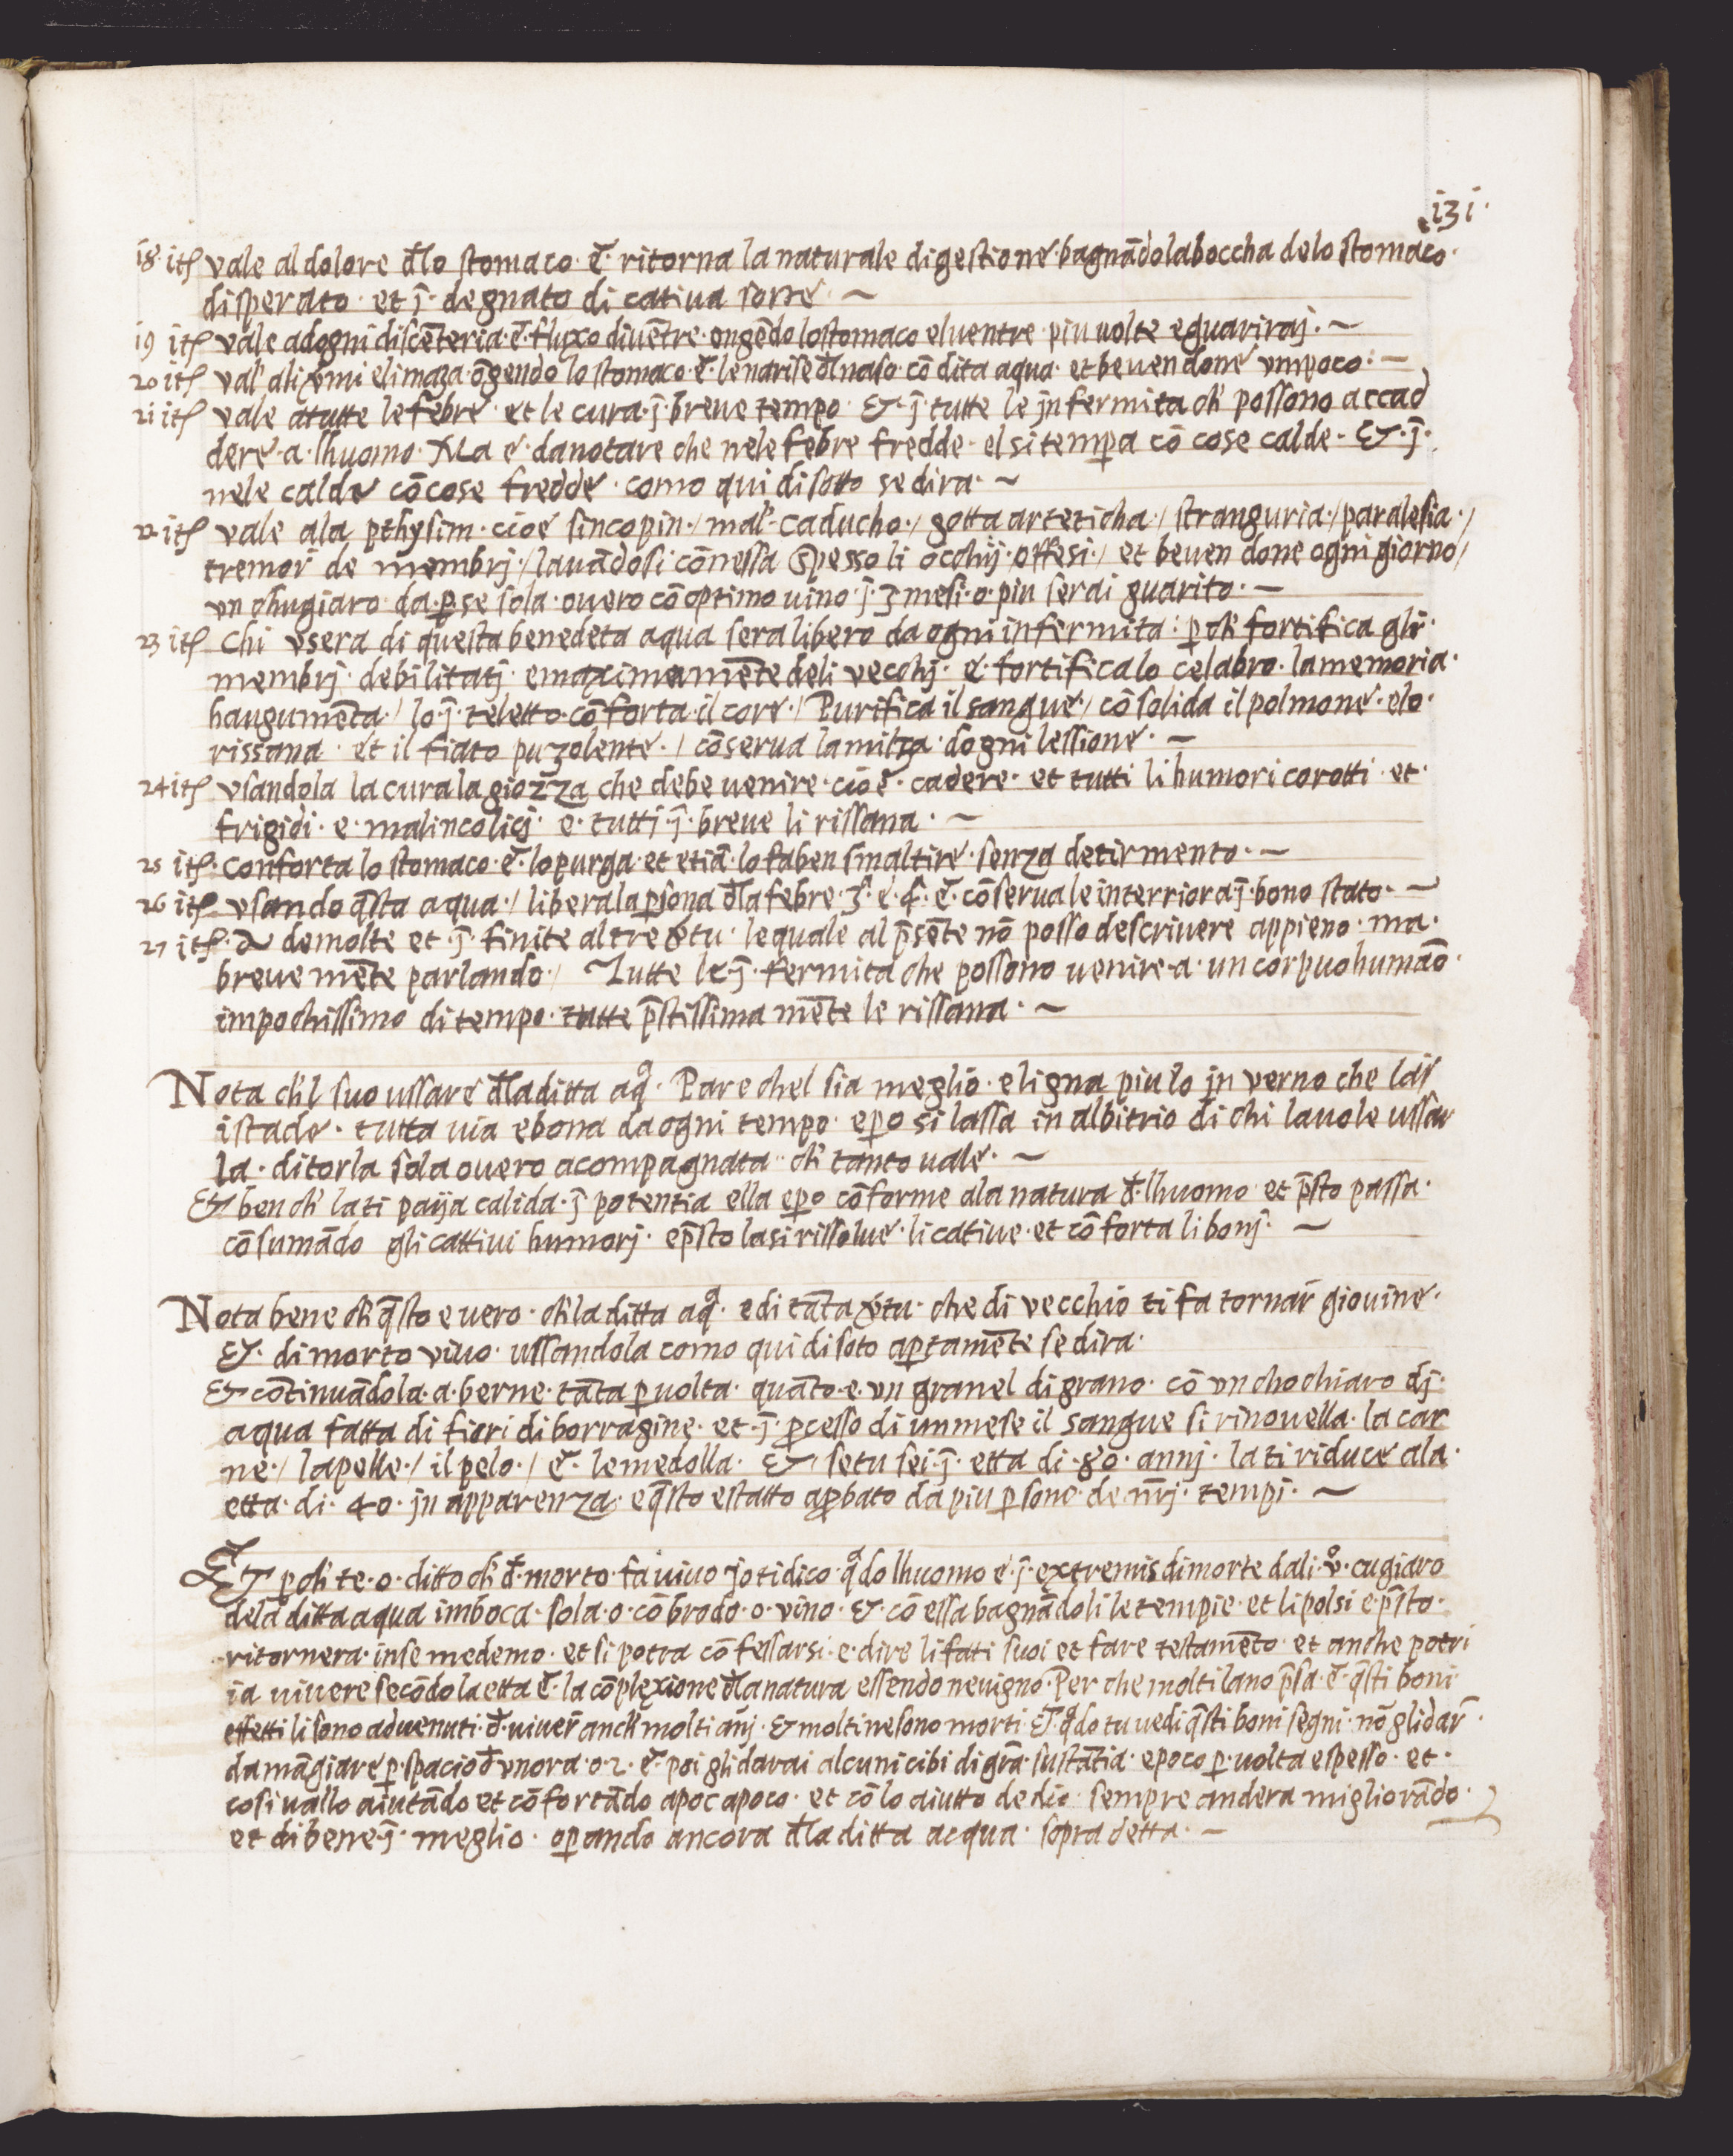 131.
18. itꝭ vale al dolore đlo stomaco · ē · ritorna la naturale digestione · bagnādo la boccha de lo stomaco ·
disperato · et j̄ · degnato di catiua sorte · ~
19 itꝭ vale adogni discēteria · ē · fluxo di uētre · ongēdo lo stomaco el uentre · piu uolte e guariraj · ~
20 itꝭ val' ali v̄mi e limaza · ōgendo lo stomaco · ē · le narise đl naso · cō dita aqua · et beuendone vmpoco : —
21 itꝭ vale atutte le febre · et le cura · j̄ · breue tempo · & · j̄ · tutte le jnfermita ch' possono accad
dere · a · lhuomo · Ma e · da notare che nele febre fredde · el si tempa cō cose calde · & · j̄ ·
nele calde cō cose fredde · como qui di sotto se dira · ~
22 itꝭ vale ala pthysim · cioe sincopin · / mal' · caducho · / gotta arteticha · / stranguria · / paralesia · /
tremor de membrj · / lauādosi cōnessa spesso li occhij offesi · / et beuen done ogni giorno /
vn chugiaro · da · ꝑ se sola · ouero cō optimo uino · j̄ · 3 mesi · o · piu serai guarito · —
23 itꝭ Chi vsera di questa benedeta aqua sera libero da ogni infirmita : ꝑ ch' fortifica gli ·
membrj · debilitatj · e maximamēte deli vecchj · e · fortifica lo celabro · la memoria ·
haugumēta · / lo · j̄ · teletto · cōforta · il core · / Purifica il sangue · / cō solida il polmone · e lo ·
rissana · et il fiato puzolente · / cōserua la milza · dogni lessione · —
24 itꝭ vsandola la cura la giozza che debe uenire · cioe · cadere · et tutti li humori corotti · et ·
frigidi · e · malincolicj · e · tuttj · j̄ · breue li rissana · ~
25 itꝭ · conforta lo stomaco · ē · lo purga · et etiā · lo fa ben smaltire · senza detirmento · —
26 itꝭ vsando q̄sta aqua · / libera la ꝑsona đla febre · 3ª · e · 4ª · ē · cōserua le interriora j̄ · bono stato · —
27 itꝭ · de molte et · j̄ · finite altre v̄tu · le quale al p̄sēte nō posso descriuere appieno · ma ·
breue mēte parlando · / Tutte le · j̄ · fermita che possono uenire · a · un corpuo humāo ·
impochissimo di tempo · tutte p̄stissima mēte le rissana · ~
Nota ch'l suo ussare đla ditta aqª · Pare chel sia meglio · e ligna piu lo jn verno che la j
istade · tutta uia e bona da ogni tempo · eꝑo si lassa in albitrio di chi la uole ussar
la · di torla sola ouero acompagnata · ch' tanto uale · ~
& ben ch' la ti paija calida · j̄ potentia ella eꝑo cōforme ala natura đ · lhuomo et p̄sto passa ·
cōsumādo gli cattiui humorj · e p̄sto la si rissolue · li catiue · et cōforta li bonj · ~
Nota bene ch' q̄sto e uero · ch' la ditta aqª · e di tāta v̄tu · che di vecchio ti fa tornar giouine ·
& · di morto viuo · ussandola como qui di soto aꝑtamēte se dira ·
& cōtinuādola · a · berne · tāta ꝑ uolta · quāto · e · vn granel di grano · cō vn chochiaro dj ·
aqua fatta di fiori di borragine · et · j̄ · ꝓcesso di un mese il sangue si rinouella · la car
ne · / la pelle · / il pelo · / ē · le medolla · & se tu sei · j̄ · etta di · 80 · annj · la ti riduce ala ·
etta · di · 40 · jn apparenza · e q̄sto e statto aꝓbato da piu ꝑsone · de nr̄j · tempi · ~
Et ꝑch' te · o · ditto ch' đ · morto · fa uiuo jo ti dico · qªdo lhuomo e · j̄ · extremis di morte dali · vº · cugiaro
dela ditta aqua imboca · sola · o · cō brodo · o · vino · & · cō essa bagnādoli le tempie · et li polsi e p̄sto ·
ritornera · in se medemo · et si potra cō fessarsi · e · dire li fati suoi et fare testamēto · et anche potri
ia uiuere secōdo la etta ē · la cōplexione đla natura essendo neuigno · Per che molti lano p̄sa · ē · q̄sti boni ·
effetti li sono aduenuti · đ · uiuer̄ anch' molti anj · & molti ne sono morti · & · qªdo tu uedi q̄sti boni segni · nō gli dar̄ ·
da māgiare ꝑ · spacio đ vnora · o · 2 · ē · poi gli darai alcuni cibi di grā · sustātia · e poco ꝑ · uolta e spesso · et ·
cosi uallo aiutādo et cōfortādo apoc apoco · et cō lo aiutto de dio · sempre andera migliorādo ·
et di bene · j̄ · meglio · oꝑando ancora đla ditta acqua · sopra detta · —